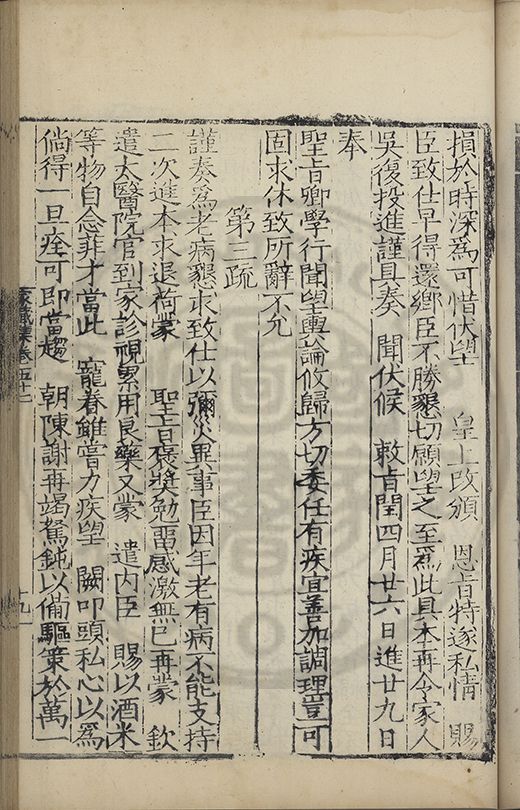 損於時深爲可惜伏望 皇上改頒 恩旨特遂私情 賜
臣致仕早得還鄉臣不勝懇切願望之至爲此具本再令家人
吳復投進謹具奏 聞伏候 敕旨閏四月廿六日進廿九日
奉
聖旨卿學行聞望輿論攸歸方切委任有疾宜善加調理豈可
固求休致所辭不允
第三疏
謹奏爲老病懇求致仕以彌災異事臣因年老有病不能支持
二次進本求退荷蒙 聖旨褒奬勉畱感激無已再蒙 欽
遣太醫院官到家診視累用良藥又蒙 遣内臣 賜以酒米
等物自念菲才當此 寵眷雖嘗力疾望 闕叩頭私心以爲
倘得一旦痊可即當趨 朝陳謝再竭駑鈍以備驅策於萬一
家藏集卷五十二
十九